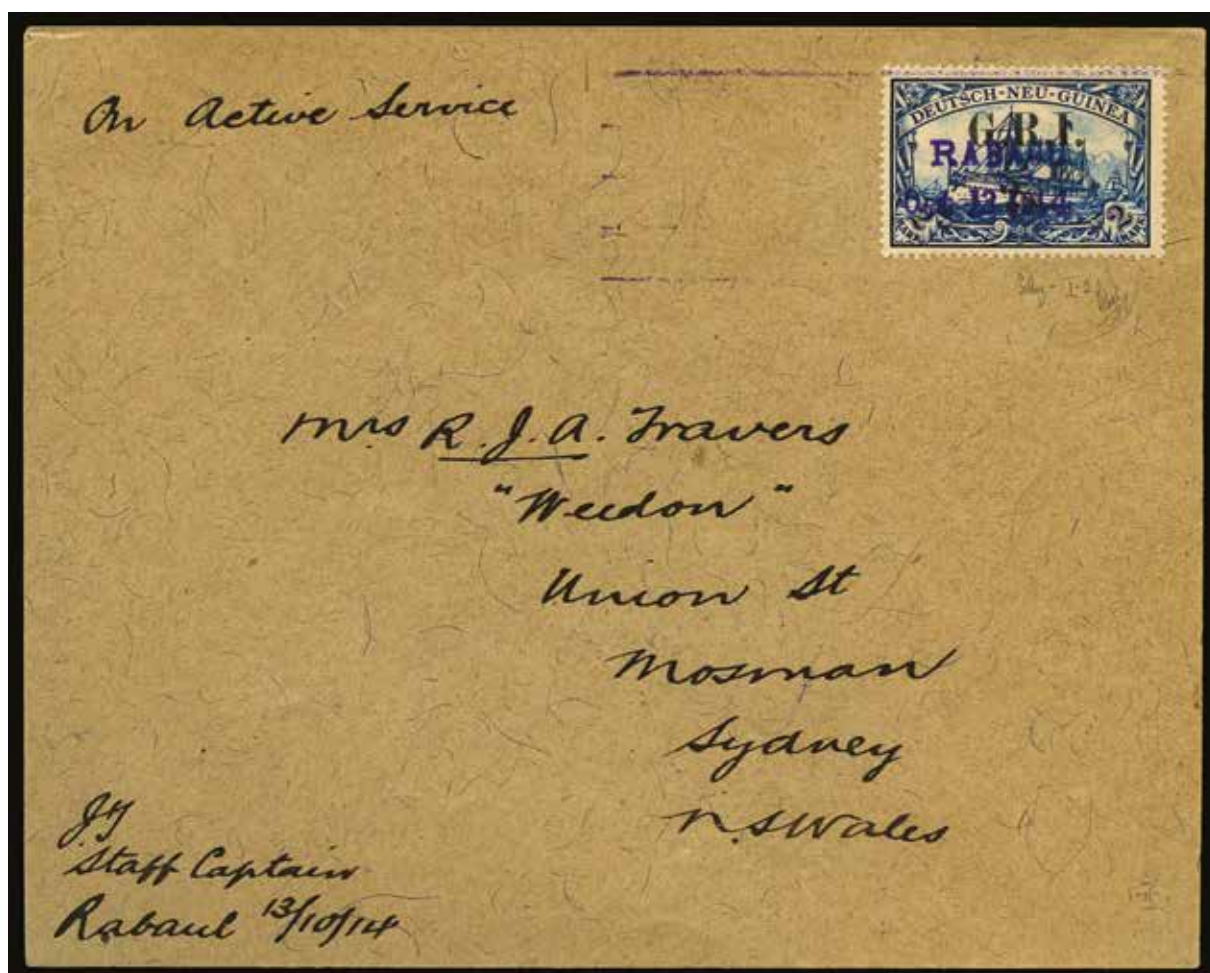 On Active Service
DEUTSCH-NEU-GUINEA
G.R.I.
RABAUL
Oct 12 1914
2 MARK 2 MARK
Mrs R. J. A. Travers
"Weedon"
Union St
Mosman
Sydney
N. S Wales
JT
Staff Captain
Rabaul 13/10/14